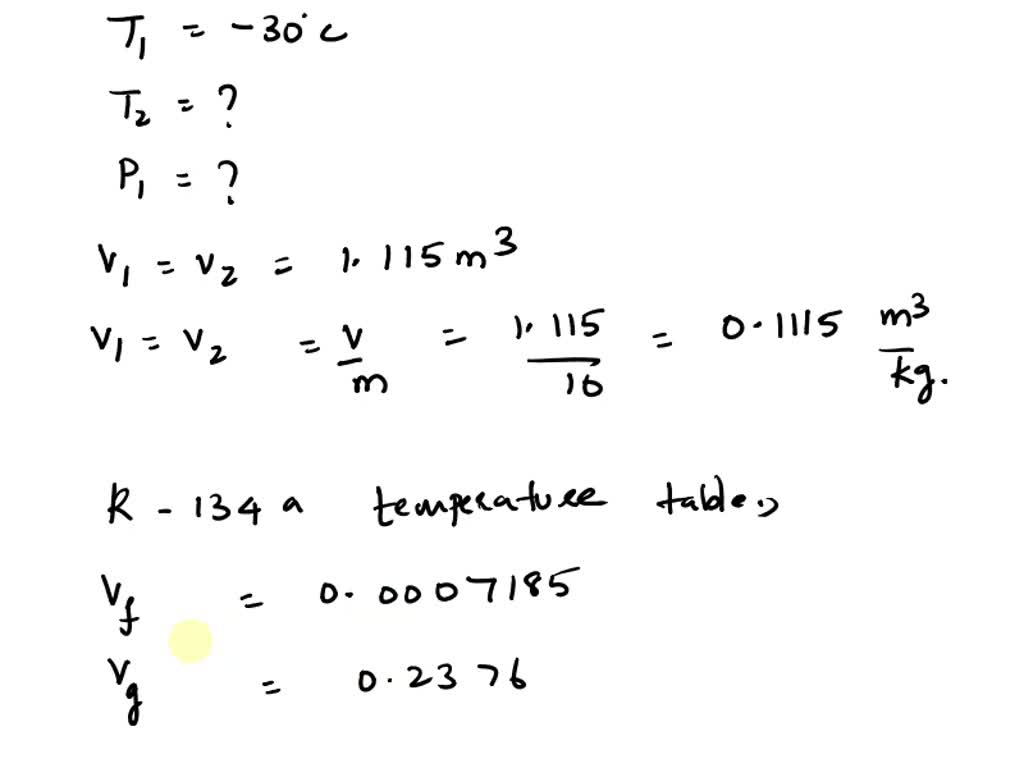 T1 = -30°C
T2 = ?
P1 = ?
V1 = V2 = 1.115 m3
V1 = V2 = V/m = 1.115/10 = 0.1115 m3/kg.
R - 134 a temperature table,
Vf = 0.0007185
Vg = 0.2376